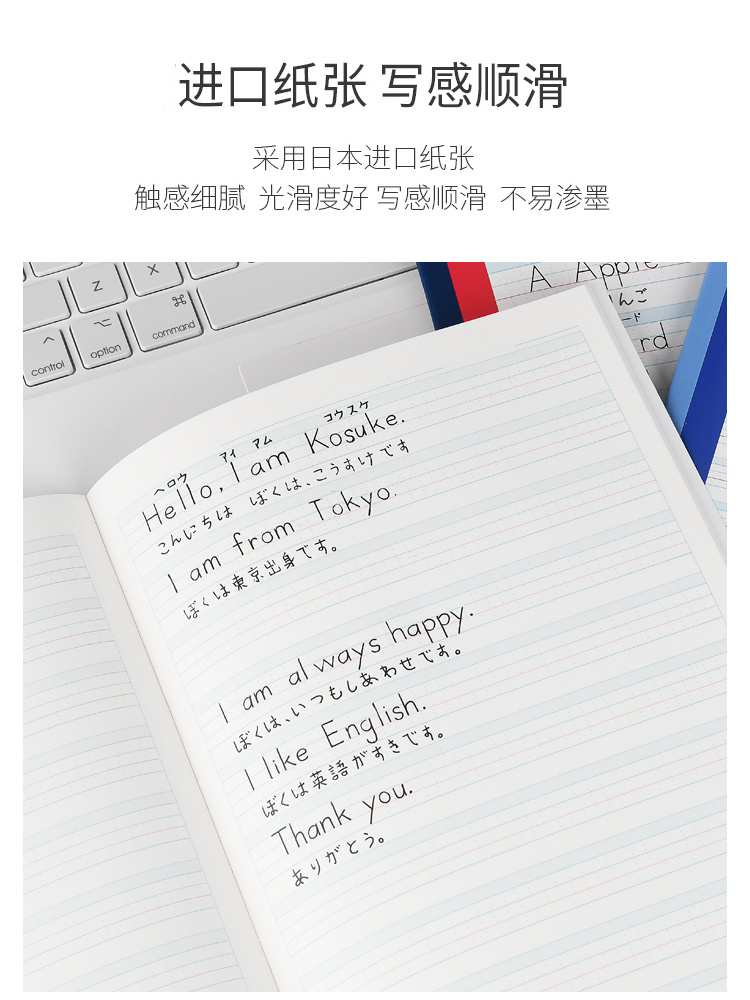 进口纸张 写感顺滑
采用日本进口纸张
触感细腻 光滑度好 写感顺滑 不易渗墨
Z
X
⌘
command
⌥
option
^
control
A Apple
んご
ード
rd
ヘロウ アイ アム コウスケ
Hello, I am Kosuke.
こんにちは ぼくは、こうすけです
I am from Tokyo.
ぼくは東京出身です。
I am always happy.
ぼくは、いつもしあわせです。
I like English.
ぼくは英語がすきです。
Thank you.
ありがとう。